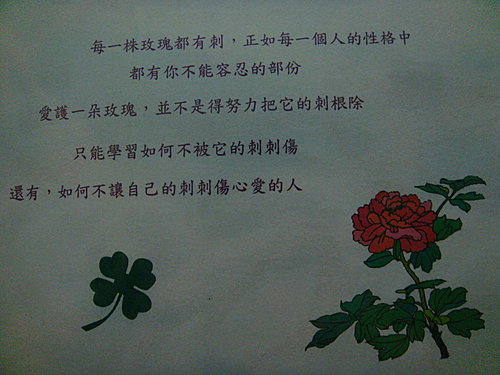 每一株玫瑰都有刺，正如每一個人的性格中
都有你不能容忍的部份
愛護一朵玫瑰，並不是得努力把它的刺根除
只能學習如何不被它的刺刺傷
還有，如何不讓自己的刺刺傷心愛的人